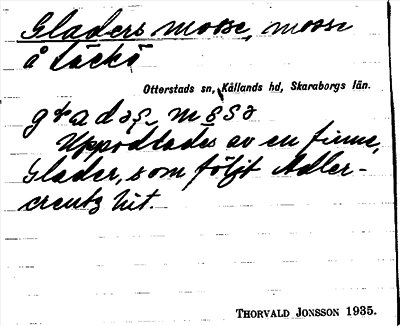 Gladers mosse, mosse
å Läckö
Otterstads sn, Kållands hd, Skaraborgs län.
Uppodlades av en finne,
Glader, som följt Adler-
creutz hit.
THORVALD JONSSON 1935.